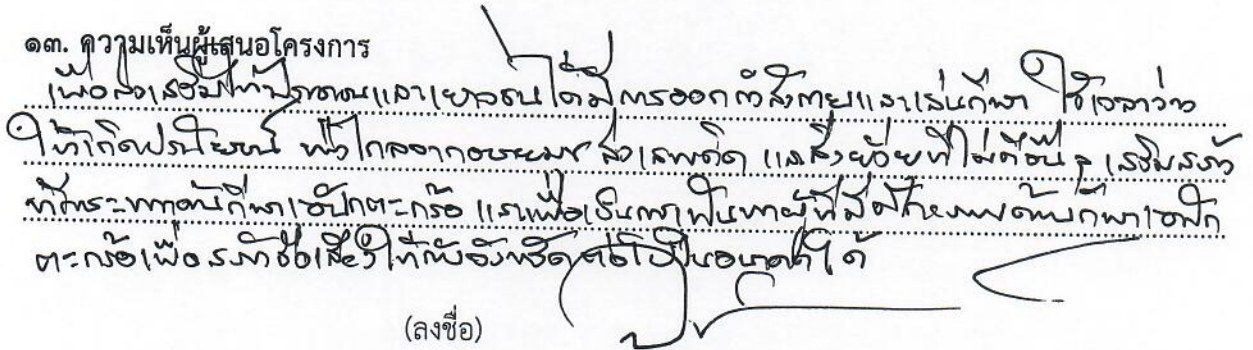 ๑๓. ความเห็นผู้เสนอโครงการ
เพื่อส่งเสริมให้ประชาชนและเยาวชนได้มีการออกกำลังกายและเล่นกีฬา ใช้เวลาว่าง
ให้เกิดประโยชน์ ห่างไกลจากอบายมุข สิ่งเสพติด และสิ่งยั่วยุที่ไม่ดีอื่น ๆ เสริมสร้าง
ทักษะทางด้านกีฬาเซปักตะกร้อ และเพื่อเฟ้นหาผู้ที่มีทักษะด้านกีฬาเซปัก
ตะกร้อเพื่อสร้างชื่อเสียงให้กับจังหวัดต่อไปในอนาคตได้
(ลงชื่อ)